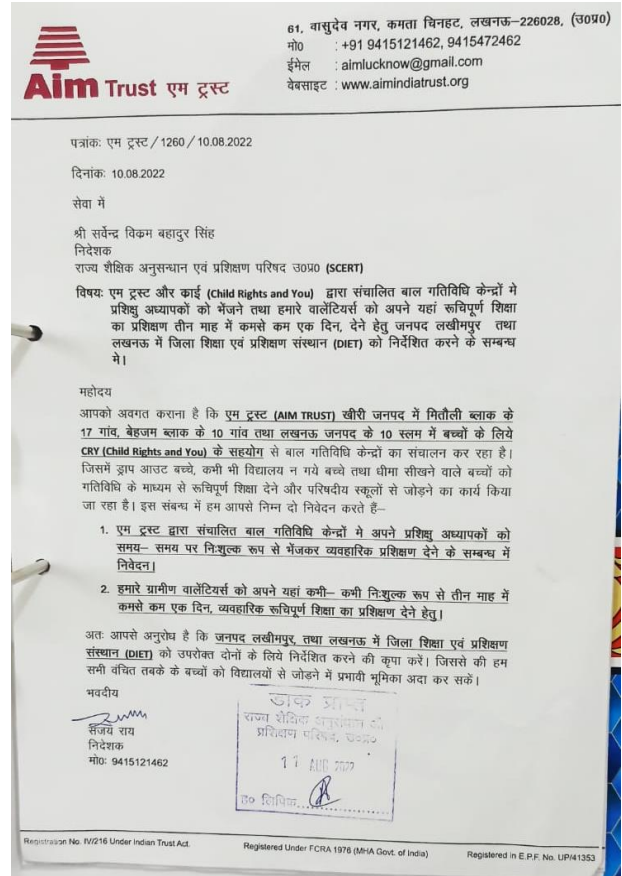 61, वासुदेव नगर, कमता चिनहट, लखनऊ–226028, (उ0प्र0)
मो0 : +91 9415121462, 9415472462
ईमेल : aimlucknow@gmail.com
वेबसाइट : www.aimindiatrust.org
Aim Trust एम ट्रस्ट
पत्रांकः एम ट्रस्ट/1260/10.08.2022
दिनांकः 10.08.2022
सेवा में
श्री सर्वेन्द्र विक्रम बहादुर सिंह
निदेशक
राज्य शैक्षिक अनुसन्धान एवं प्रशिक्षण परिषद उ0प्र0 (SCERT)
विषयः एम ट्रस्ट और काई (Child Rights and You) द्वारा संचालित बाल गतिविधि केन्द्रों मे
प्रशिक्षु अध्यापकों को भेंजने तथा हमारे वालेंटियर्स को अपने यहां रूचिपूर्ण शिक्षा
का प्रशिक्षण तीन माह में कमसे कम एक दिन, देने हेतु जनपद लखीमपुर तथा
लखनऊ में जिला शिक्षा एवं प्रशिक्षण संस्थान (DIET) को निर्देशित करने के सम्बन्ध
मे।
महोदय
आपको अवगत कराना है कि एम ट्रस्ट (AIM TRUST) खीरी जनपद में मितौली ब्लाक के
17 गांव, बेहजम ब्लाक के 10 गांव तथा लखनऊ जनपद के 10 स्लम में बच्चों के लिये
CRY (Child Rights and You) के सहयोग से बाल गतिविधि केन्द्रों का संचालन कर रहा है।
जिसमें ड्राप आउट बच्चे, कभी भी विद्यालय न गये बच्चे तथा धीमा सीखने वाले बच्चों को
गतिविधि के माध्यम से रूचिपूर्ण शिक्षा देने और परिषदीय स्कूलों से जोड़ने का कार्य किया
जा रहा है। इस संबन्ध में हम आपसे निम्न दो निवेदन करते हैं–
1. एम ट्रस्ट द्वारा संचालित बाल गतिविधि केन्द्रों मे अपने प्रशिक्षु अध्यापकों को
समय– समय पर निःशुल्क रूप से भेंजकर व्यवहारिक प्रशिक्षण देने के सम्बन्ध में
निवेदन।
2. हमारे ग्रामीण वालेंटियर्स को अपने यहां कभी– कभी निःशुल्क रूप से तीन माह में
कमसे कम एक दिन, व्यवहारिक रूचिपूर्ण शिक्षा का प्रशिक्षण देने हेतु।
अतः आपसे अनुरोध है कि जनपद लखीमपुर, तथा लखनऊ में जिला शिक्षा एवं प्रशिक्षण
संस्थान (DIET) को उपरोक्त दोनों के लिये निर्देशित करने की कृपा करें। जिससे की हम
सभी वंचित तबके के बच्चों को विद्यालयों से जोड़ने में प्रभावी भूमिका अदा कर सकें।
भवदीय
संजय राय
निदेशक
मो0: 9415121462
डाक प्राप्त
राज्य शैक्षिक अनुसंधान और
प्रशिक्षण परिषद, उ०प्र०
AUG 2022
ह० लिपिक
Registration No. IV/216 Under Indian Trust Act.
Registered Under FCRA 1976 (MHA Govt. of India)
Registered in E.P.F. No. UP/41353